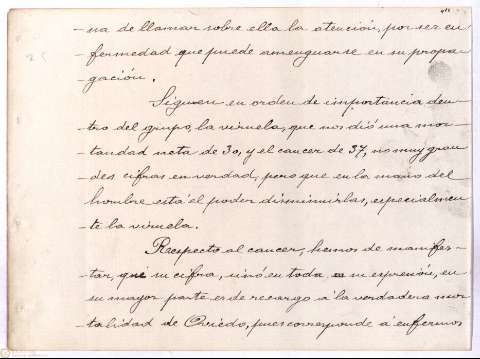 -na de llamar sobre ella la atención, por ser en-
-fermedad que puede amenguarse en su propa-
-gación.
Siguen en orden de importancia den-
-tro del grupo, la viruela, que nos dió una mor-
-tandad neta de 30, y el cancer de 37, no muy gran
des cifras en verdad, pero que en la mano del
hombre está el poder disminuirlas, especialmen-
-te la viruela.
Respecto al cancer, hemos de manifes-
-tar, que su cifra, sinó en toda su expresión, en
su mayor parte, es de recargo á la verdadera mor-
-talidad de Oviedo, pues corresponde á enfermos